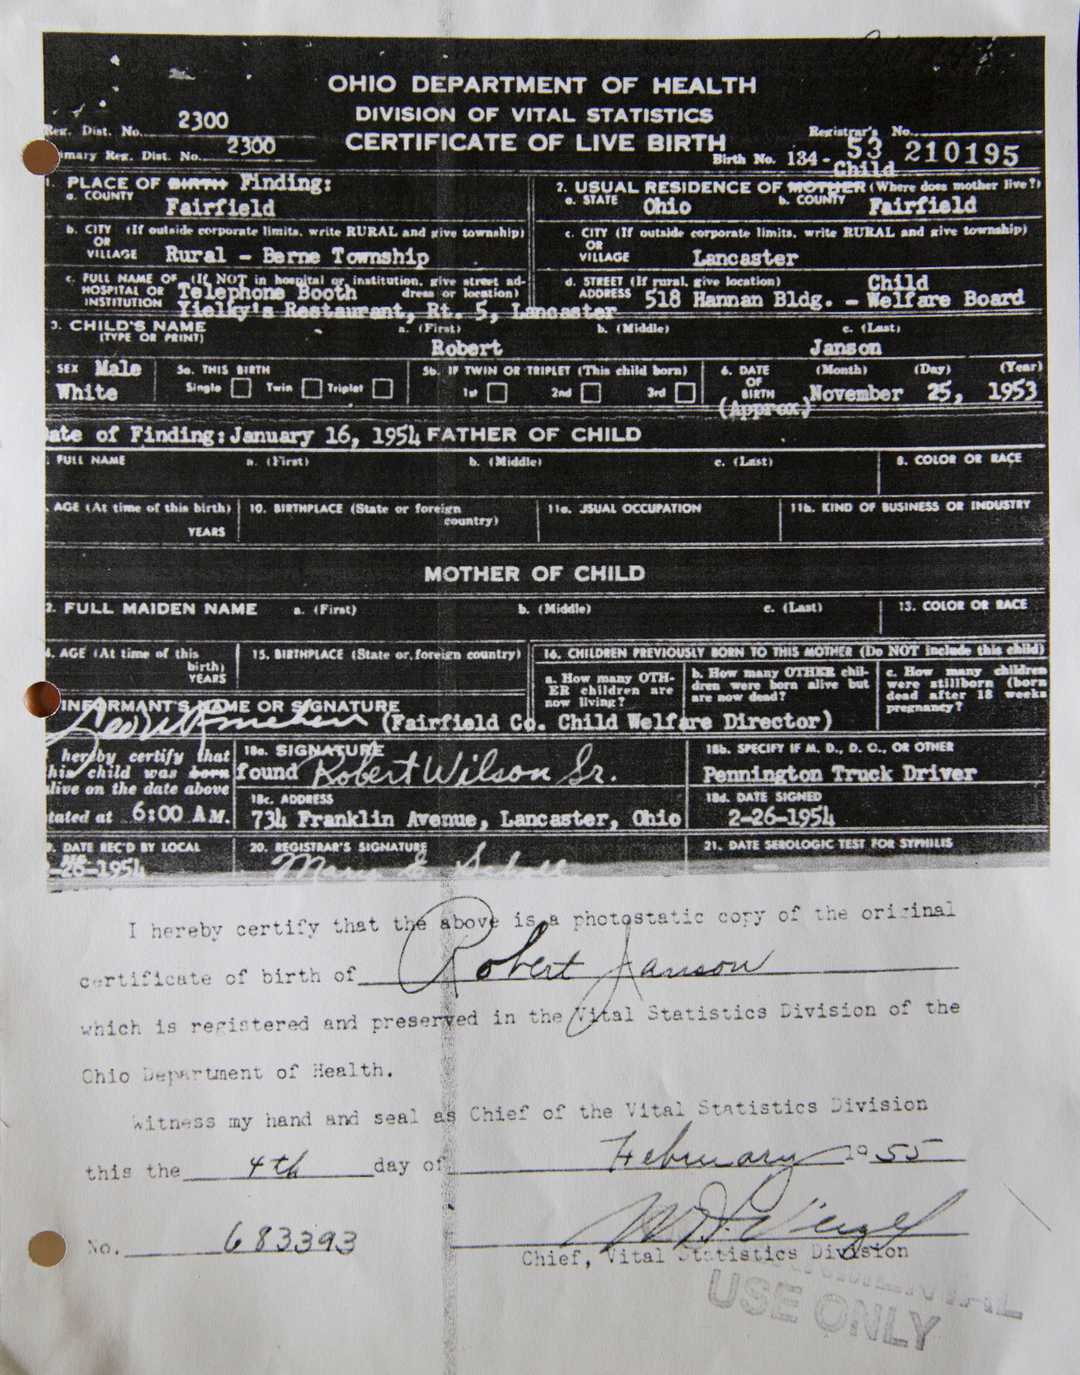 OHIO DEPARTMENT OF HEALTH
DIVISION OF VITAL STATISTICS
CERTIFICATE OF LIVE BIRTH
Reg. Dist. No. 2300
Registrar's No.
mary Reg. Dist. No. 2300
Birth No. 134- 53 210195
1. PLACE OF BIRTH Finding:
a. COUNTY
Fairfield
Child
2. USUAL RESIDENCE OF MOTHER (Where does mother live?)
a. STATE Ohio b. COUNTY Fairfield
b. CITY (If outside corporate limits, write RURAL and give township)
OR
VILLAGE Rural - Berne Township
c. CITY (If outside corporate limits, write RURAL and give township)
OR
VILLAGE Lancaster
c. FULL NAME OF (If NOT in hospital or institution, give street ad-
HOSPITAL OR Telephone Booth dress or location)
INSTITUTION Yielky's Restaurant, Rt. 5, Lancaster
d. STREET (If rural, give location) Child
ADDRESS 518 Hannan Bldg. - Welfare Board
3. CHILD'S NAME a. (First) b. (Middle) c. (Last)
(TYPE OR PRINT)
Robert Janson
SEX Male
White
5a. THIS BIRTH
Single Twin Triplet
5b. IF TWIN OR TRIPLET (This child born)
1st 2nd 3rd
6. DATE (Month) (Day) (Year)
OF
BIRTH November 25, 1953
(Approx.)
ate of Finding: January 16, 1954 FATHER OF CHILD
FULL NAME a. (First) b. (Middle) c. (Last) 8. COLOR OR RACE
AGE (At time of this birth)
YEARS
10. BIRTHPLACE (State or foreign
country)
11a. USUAL OCCUPATION
11b. KIND OF BUSINESS OR INDUSTRY
MOTHER OF CHILD
2. FULL MAIDEN NAME a. (First) b. (Middle) c. (Last) 13. COLOR OR RACE
4. AGE (At time of this
birth)
YEARS
15. BIRTHPLACE (State or foreign country)
16. CHILDREN PREVIOUSLY BORN TO THIS MOTHER (Do NOT include this child)
a. How many OTH-
ER children are
now living?
b. How many OTHER chil-
dren were born alive but
are now dead?
c. How many children
were stillborn (born
dead after 18 weeks
pregnancy?
INFORMANT'S NAME OR SIGNATURE
(Fairfield Co. Child Welfare Director)
hereby certify that
his child was born
live on the date above
tated at 6:00 A M.
18a. SIGNATURE
found Robert Wilson Sr.
18b. SPECIFY IF M. D., D. O., OR OTHER
Pennington Truck Driver
18c. ADDRESS
734 Franklin Avenue, Lancaster, Ohio
18d. DATE SIGNED
2-26-1954
9. DATE REC'D BY LOCAL
-26-1954
20. REGISTRAR'S SIGNATURE
21. DATE SEROLOGIC TEST FOR SYPHILIS
I hereby certify that the above is a photostatic copy of the original
certificate of birth of Robert Janson
which is registered and preserved in the Vital Statistics Division of the
Ohio Department of Health.
Witness my hand and seal as Chief of the Vital Statistics Division
this the 4th day of February 1955
No. 683393
Chief, Vital Statistics Division
USE ONLY